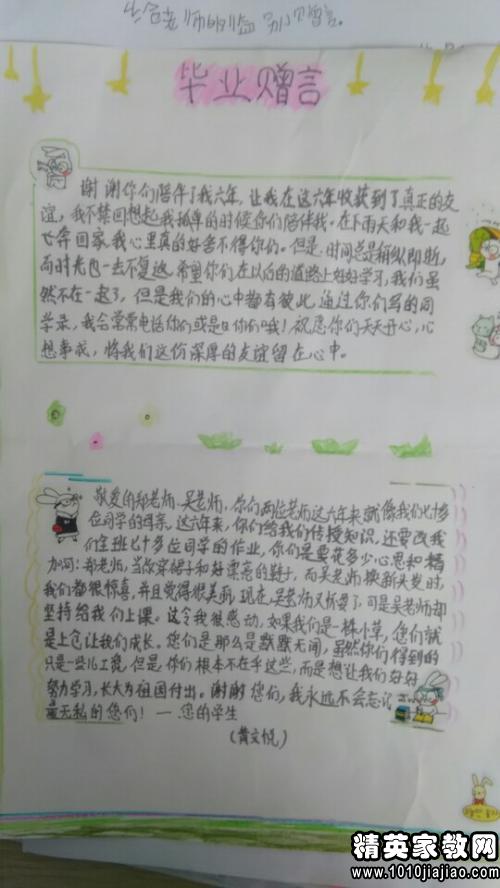 老师的临别赠言
毕业赠言
谢谢你们陪伴了我六年,让我在这六年收获到了真正的友
谊,我不禁回想起我孤单的时候你们陪伴我。在下雨天和我一起
飞奔回家,我心里真的好舍不得你们。但是,时间总是稍纵即逝,
而时光也一去不复返,希望你们在以后的道路上好好学习,我们虽
然不在一起了,但是我们的心中都有彼此,通过你们写的同
学录,我会常常电话你们或是Q你们哦!祝愿你们天天开心,心
想事成,将我们这份深厚的友谊留在心中。
敬爱的郑老师、吴老师,你们两位老师这六年来就像我们七十多
位同学的母亲。这六年来,你们给我们传授知识,还要改我
们全班七十多位同学的作业,你们是要花多少心思和精
力啊!郑老师,当你穿裙子和好漂亮的鞋子,而吴老师换新头发时,
我们都很惊喜,并且觉得很美丽,现在吴老师又怀孕了,可是吴老师却
坚持给我们上课。这令我很感动,如果我们是一株小草,您们就
是土仓让我们成长。您们是那么是默默无闻,虽然你们得到的
只是一些儿工资,但是,你们根本不在乎这些,而是想让我们好好
努力学习,长大为祖国付出。谢谢您们,我永远不会忘记
最无私的您们!一 您的学生
(黄文悦)
精英家教网
www.1010jiajiao.com